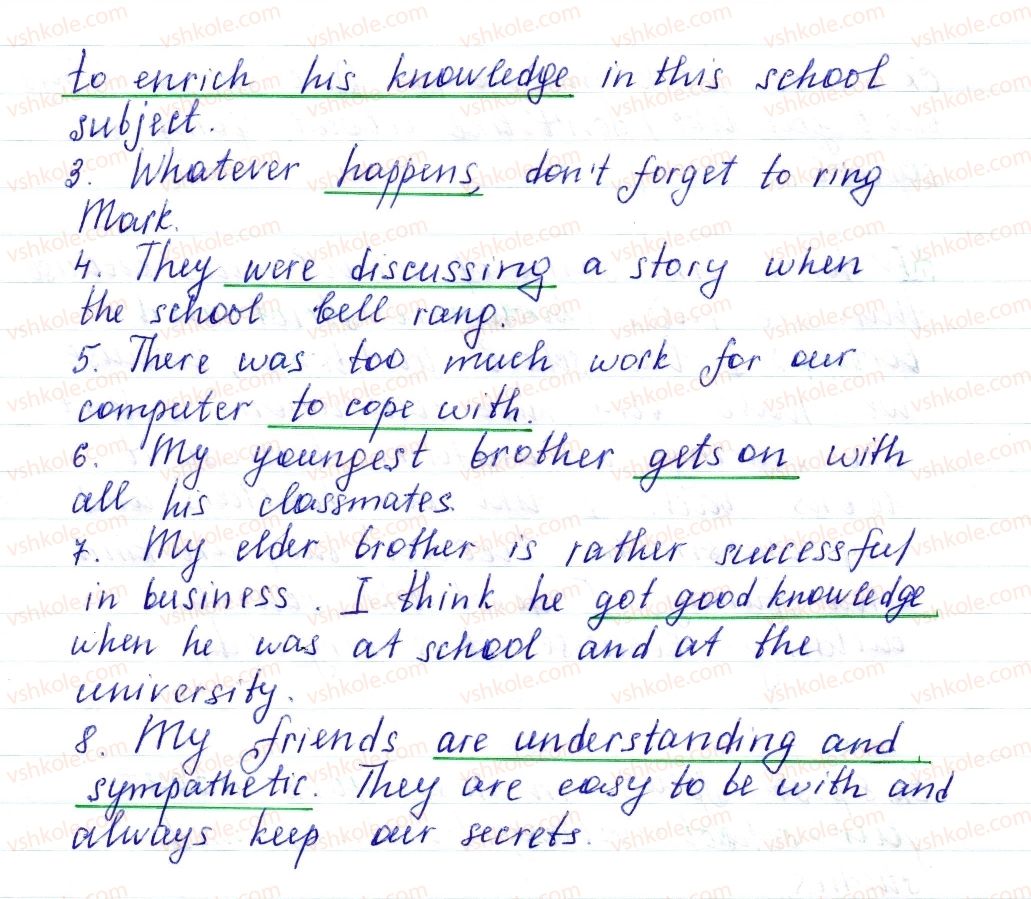 to enrich his knowledge in this school
subject.
3. Whatever happens, don't forget to ring
Mark.
4. They were discussing a story when
the school bell rang.
5. There was too much work for our
computer to cope with.
6. My youngest brother gets on with
all his classmates.
7. My elder brother is rather successful
in business. I think he got good knowledge
when he was at school and at the
university.
8. My friends are understanding and
sympathetic. They are easy to be with and
always keep our secrets.